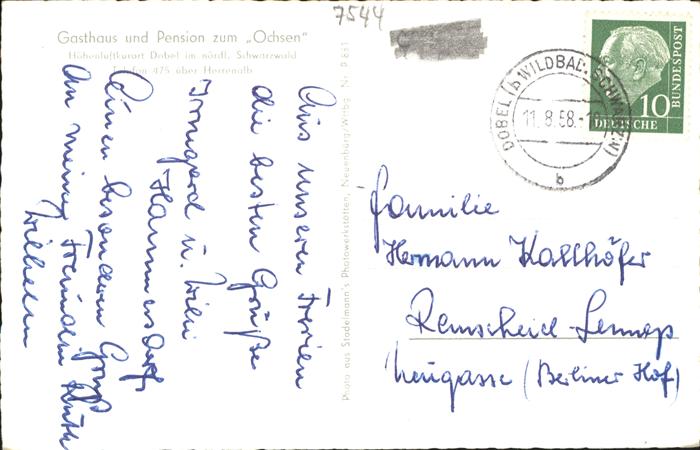 7544
Gasthaus und Pension zum „Ochsen"
Höhenluftkurort Dobel im nördl. Schwarzwald
Telefon 475 über Herrenalb
Aus unseren Ferien
die besten Grüße
Irmgard u. Willi
Hammersdorf
Einen besonderen Gruß
an meine Freundin Ruth
Wilhelm
Photo aus Stadelmann's Photowerkstätten, Neuenbürg/Wttbg. Nr. P 881
DOBEL (b WILDBAD, SCHWARZW)
11.8.58.-1
b
10
DEUTSCHE
BUNDESPOST
Familie
Hermann Kallhöfer
Remscheid-Lennep
Neugasse (Berliner Hof)